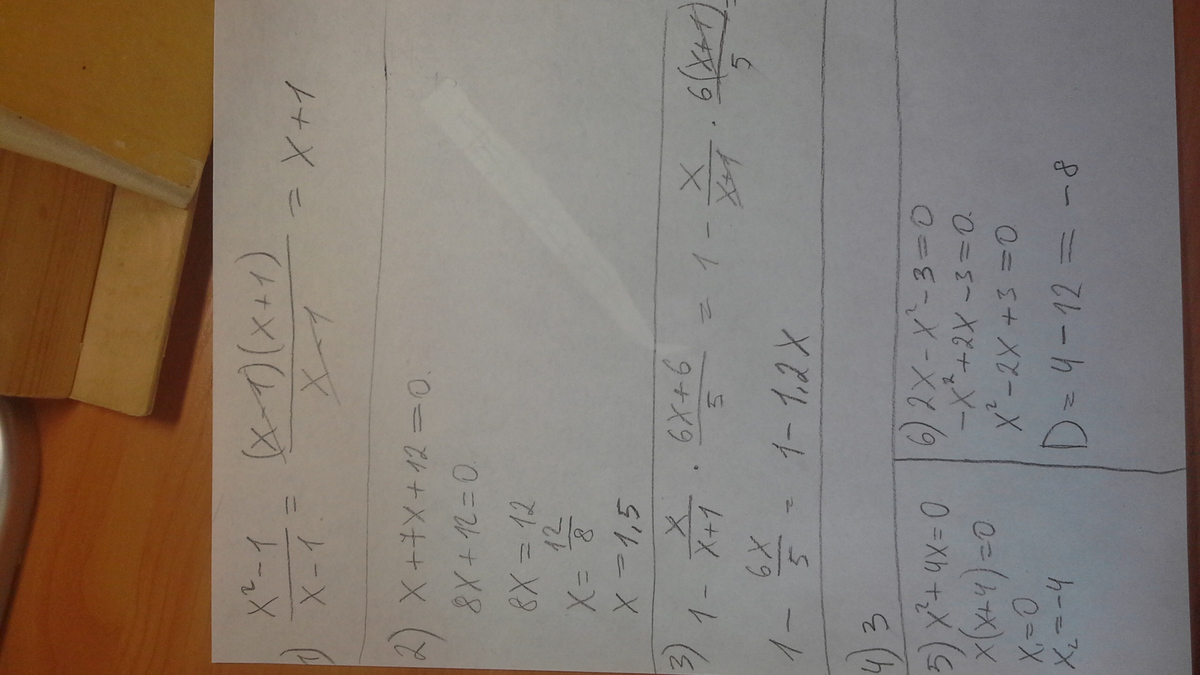 1) x²-1/x-1 = (x-1)(x+1)/x-1 = x+1
2) x+7x+12=0.
8x+12=0.
8x=12
x=12/8
x=1,5
3) 1 - x/x+1 · 6x+6/5 = 1 - x/x+1 · 6(x+1)/5 =
1 - 6x/5 = 1-1,2x
4) 3
5) x²+4x=0
x(x+4)=0
x₁=0
x₂=-4
6) 2x-x²-3=0
-x²+2x-3=0.
x²-2x+3=0
D=4-12=-8